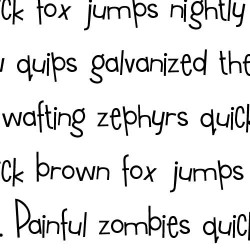 ck fox jumps nightly
quips galvanized the
wafting zephyrs quick
ick brown fox jumps
. Painful zombies quick